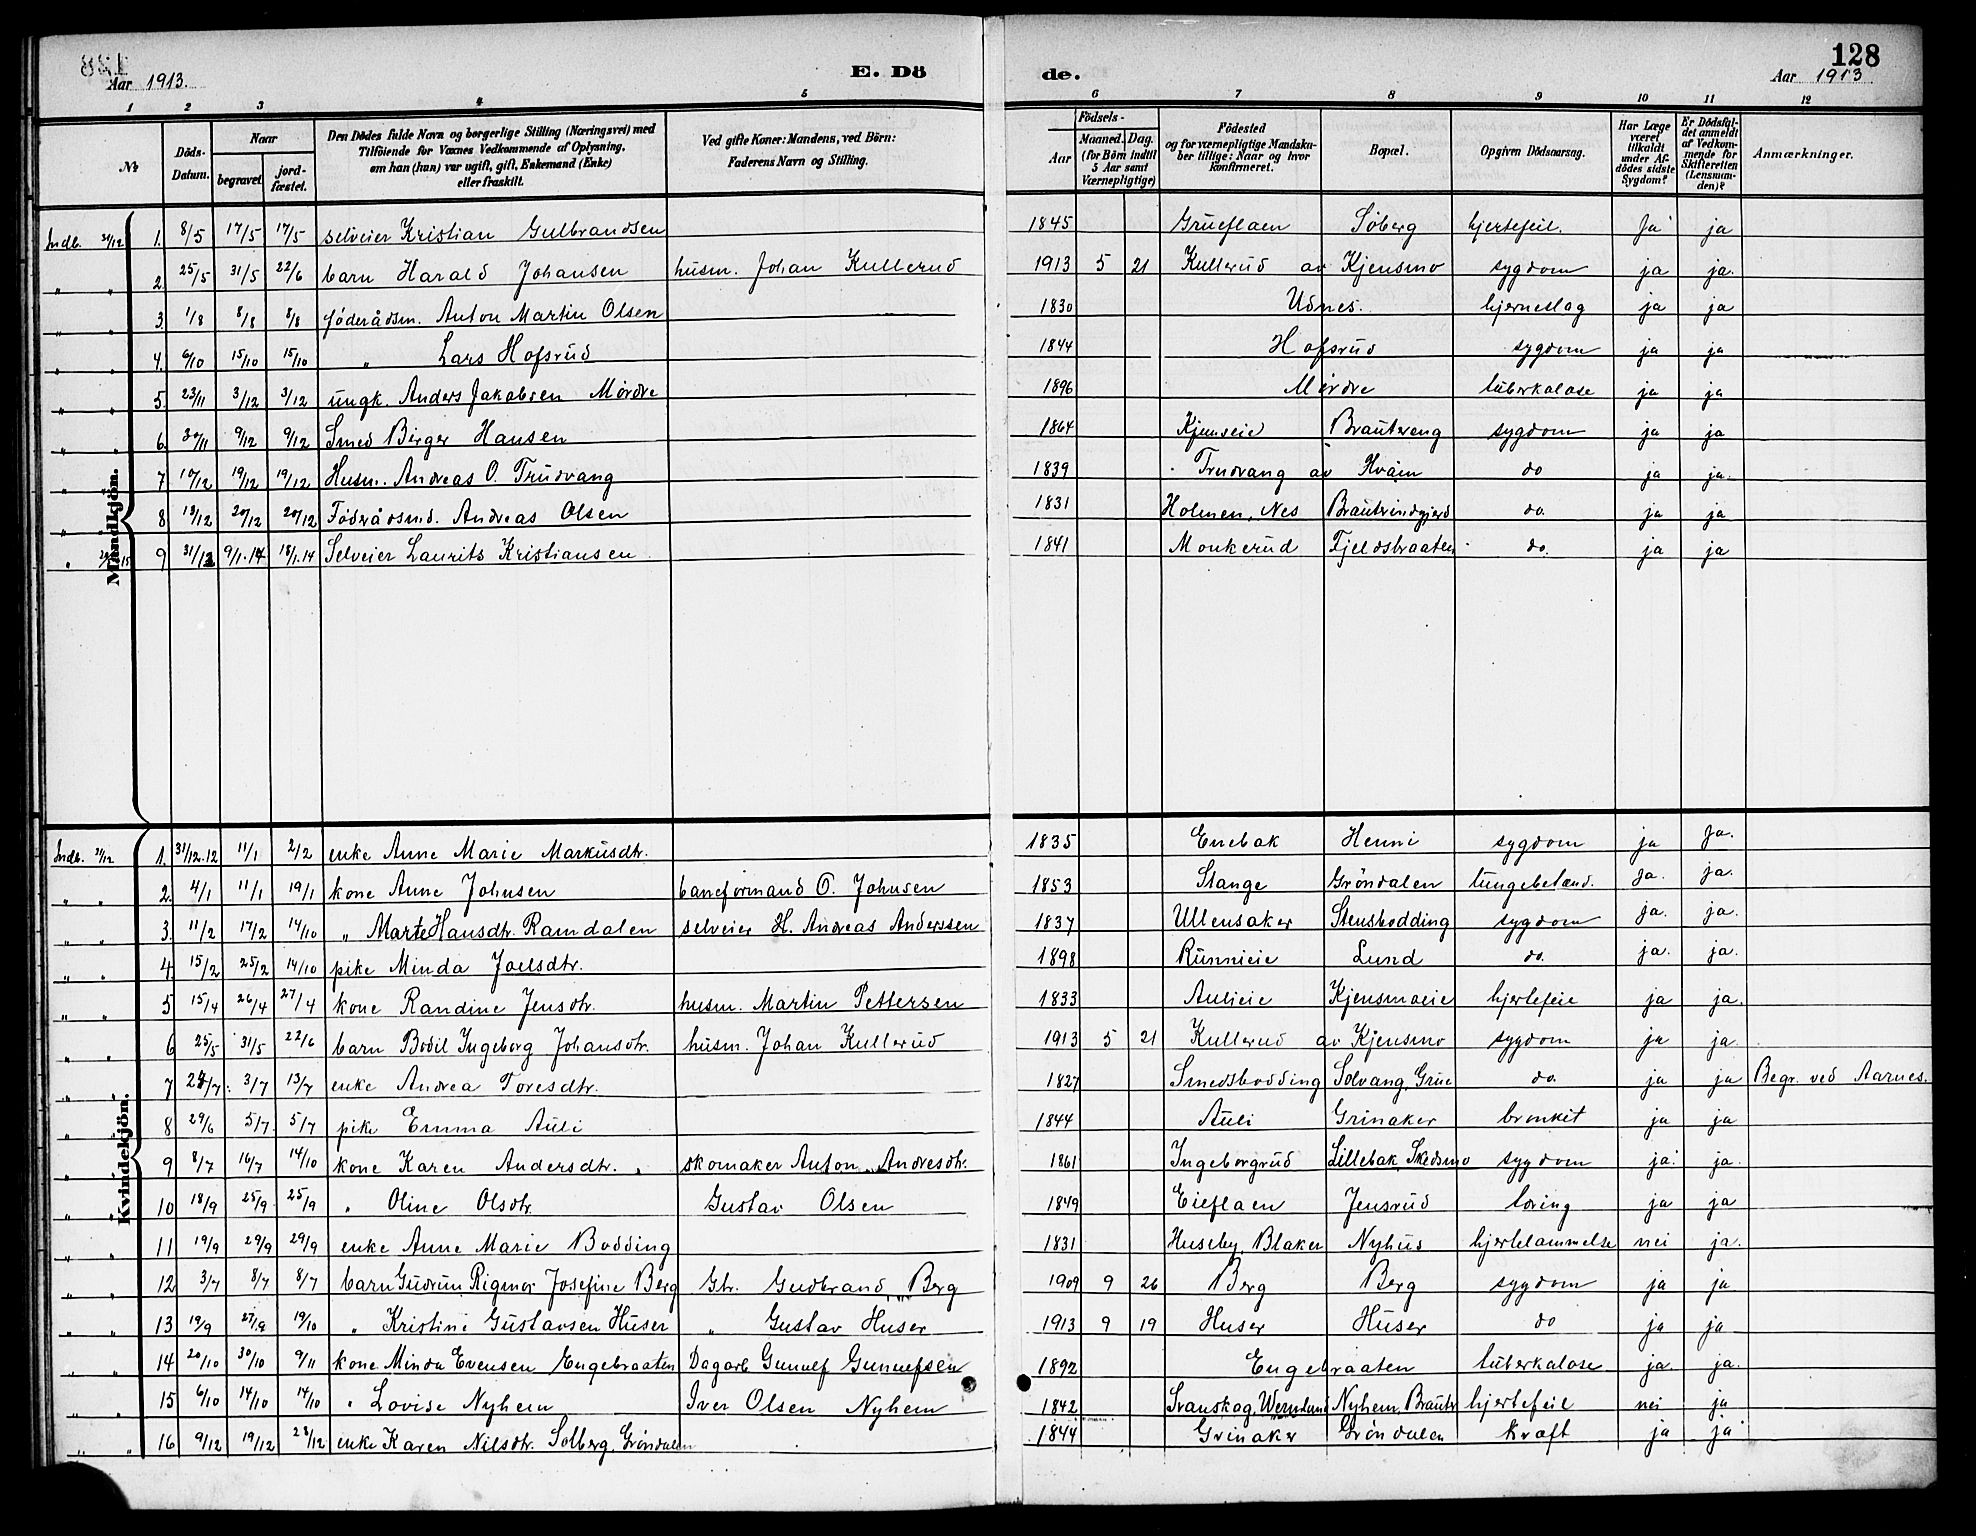 128
Aar 1913. E. Dö de. Aar 1913
1 2 3 4 5 6 7 8 9 10 11 12
No. Döds-Datum. Naar begravet. jordfæstet. Den Dödes fulde Navn og borgerlige Stilling (Næringsvei) med Tilföiende for Voxnes Vedkommende af Oplysning, om han (hun) var ugift, gift, Enkemand (Enke) eller fraskilt. Ved gifte Koner: Mandens, ved Börn: Faderens Navn og Stilling. Födsels- Aar Maaned. Dag. (for Börn indtil 5 Aar samt Værnepligtige) Födested og for værnepligtige Mandskaber tillige: Naar og hvor konfirmeret. Bopæl. Opgiven Dödsaarsag. Har Læge været tilkaldt under Afdödes sidste Sygdom? Er Dödsfaldet anmeldt af Vedkommende for Skifteretten (Lensmanden)? Anmærkninger.
Mandkjön.
Indb. 31/12 1. 8/5 17/5 17/5 selveier Kristian Gulbrandsen 1845 Grueflaen Söberg hjertefeil. Ja ja
" " 2. 25/5 31/5 22/6 barn Harald Johansen husm. Johan Kullerud 1913 5 21 Kullerud av Kjensmo sygdom ja ja.
" " 3. 1/8 8/8 8/8 föderådsm. Anton Martin Olsen 1830 Udnes. hjerneslag ja ja
" " 4. 6/10 15/10 15/10 " Lars Hofsrud 1844 Hofsrud sygdom ja ja
" " 5. 23/11 3/12 3/12 ungk. Anders Jakobsen Mördre 1896 Mördre tuberkalose ja ja
" " 6. 30/11 9/12 9/12 Smed Birger Hansen 1864 Kjenseie Brautereng sygdom ja ja
" " 7 10/12 19/12 19/12 Husm. Andreas O. Trudvang 1839 Trudvang av Hvam do ja ja.
" " 8 13/12 20/12 20/12 Föderådsmd. Andreas Olsen 1831 Holmen, Nes do. ja ja
" 9 31/12 9/1.14 18/1.14 Selveier Laurits Kristiansen 1841 Monkerud Fjeldsbraaten do. ja ja
Kvindekjön.
Indb. 31/12 1. 31/12.12 11/1 2/2 enke Anne Marie Markusdtr. 1835 Enebak Henni sygdom ja Ja.
" " 2. 4/1 11/1 19/1 kone Anne Johnsen baneformand O. Johnsen 1853 Stange Gröndalen lungebetænd. Ja. Ja.
" " 3. 11/2 17/2 14/10 " Marte Hansdtr. Ramdalen selveier H. Andreas Anderssen 1837 Ullensaker Stensbodding sygdom Ja. ja.
" " 4. 15/2 25/2 14/10 pike Minda Joelsdtr. 1898 Runnieie Lund do. ja. ja.
" " 5 15/4 26/4 27/4 kone Randine Jensdtr. husm. Martin Pettersen 1833 Aulieie Kjensmoeie hjertefeie ja ja.
" " 6 25/5 31/5 22/6 barn Bodil Ingeborg Johansdtr. husm. Johan Kullerud 1913 5 21 Kullerud av Kjensmo sygdom ja ja.
" " 7 3/7 13/7 enke Andrea Toresdtr. 1827 Smedsbodding Solvang, Grue do. ja ja Begr. ved Aarnes.
" " 8 29/6 5/7 5/7 pike Emma Auli 1844 Auli Grinaker bronkit ja ja
" " 9 8/7 16/7 14/10 kone Karen Andersdtr. skomaker Anton Andresdtr. 1861 Ingeborgrud Lillebak, Skedsmo sygdom ja. ja.
" " 10 18/9 25/9 25/9 " Oline Olsdtr. Gustav Olsen 1849 Eieflaen Jensrud toring ja ja
" " 11 19/9 29/9 29/9 enke Anne Marie Bodding 1831 Huseby, Blaker Nyhus hjertelammelse nei ja.
" " 12 3/7 8/7 8/7 barn Gudrun Rigmor Josefine Berg Gbr. Gudbrand Berg 1909 9 26 Berg Berg sygdom ja ja
" " 13 19/9 27/9 19/10 " Kristine Gustavsen Huser " Gustav Huser 1913 9 19 Huser Huser do ja ja
" " 14 20/10 30/10 9/11 kone Minda Evensen Engebraaten Dagarb Gunnulf Gunnulfsen 1892 Engebraaten tuberkalose ja ja.
" " 15 6/10 14/10 14/10 " Lovise Nyhem Iver Olsen Nyhem 1842 Svanskog, Wermland Nyhem, Brautr hjertefeil nei ja
" " 16 9/12 19/12 28/12 enke Karen Nilsdtr. Solberg, Gröndalen 1844 Grinaker Gröndalen Kræft ja ja